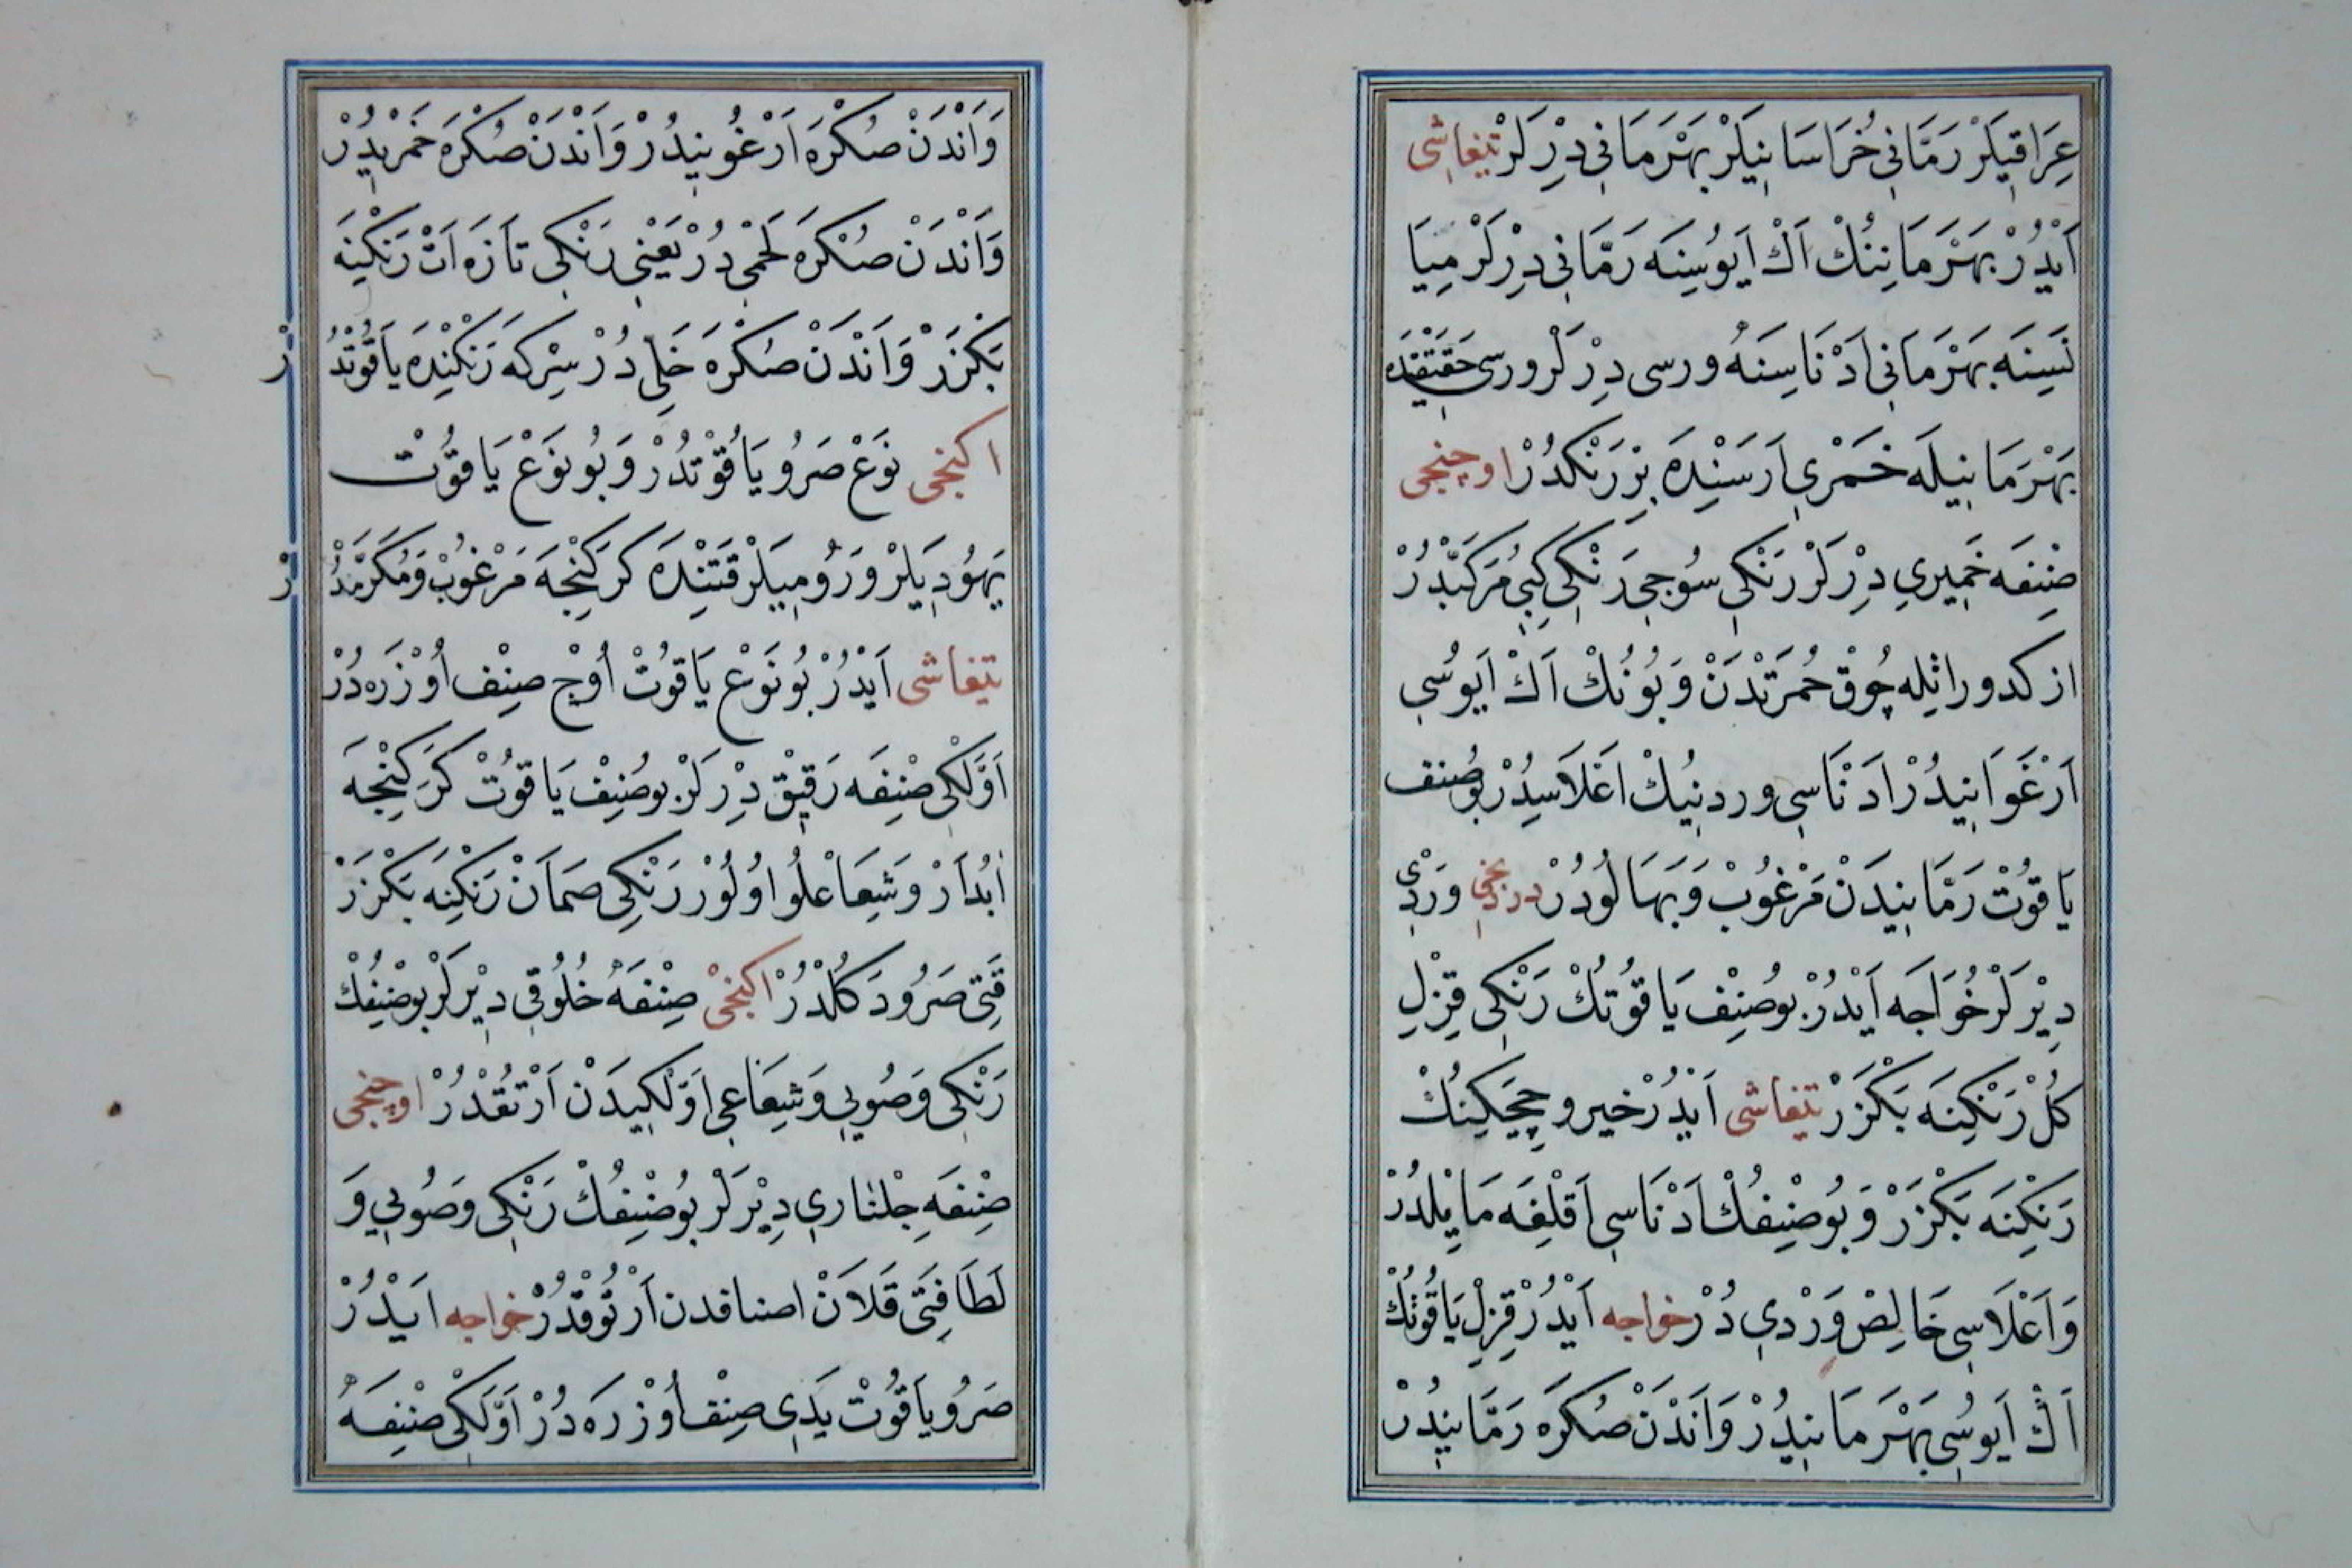 عِرَاقِيلَرْ رَمَّانِي خُرَاسَانِيلَرْ بَهْرَمَانِي دِرْلَرْ تيفاشى
اَيْدُرْ بَهْرَمَانِنُكْ اَكْ اَيُوسِنَه رَمَّانِي دِرْلَرْ مِيَا
نَسِنَه بَهْرَمَانِي اَدْنَاسِنَهْ ورسى دِرْلَرْ ورسى حَقِيقَتْدَه
بَهْرَمَانِيلَه خَمْرِي اَرَسَنْدَه بِرْ رَنْكدُرْ اوچنجى
صِنِفَه خَمِيرِي دِرْلَرْ رَنْكِي سُوجِي رَنْكِي كِبِي مُرَكَّبْدُرْ
ازكدوراثله چُوقْ حُمرَتْدَنْ وَبُونُكْ اَكْ اَيُوسِي
اَرْغَوَانِيدُرْ اَدْنَاسِي وردنِيكْ اَعْلَاسِيدُرْ بُوصِنِف
يَاقُوتْ رَمَّانِيدَنْ مَرْغُوبْ وَبَهَالُودُرْ دردنجى وَرْدِي
دِيْرلَرْ خُوَاجَه اَيْدُرْ بُوصِنِفْ يَاقُوتُكْ رَنْكِي قِزِلِ
كُلْ رَنْكِنَه بَكْزَرْ تيفاشى اَيْدُرْ خيرو چِچَكِينُكْ
رَنكِنَه بَكْزَرْ وَبُوصْنِفُكْ اَدْنَاسِي اَقْلِغَه مَايِلدُرْ
وَاَعْلَاسِي خَالِصْ وَرْدِي دُرْ خواجه اَيْدُرْ قِزِلْ يَاقُوتُكْ
اَكْ اَيُوسِي بَهْرَمَانِيدُرْ وَاَنْدَنْ صُكْرَه رَمَّانِيدُرْ
وَاَنْدَنْ صُكْرَه اَرْغُوَنِيدُرْ وَاَنْدَنْ صُكْرَه خَمْرِيدُرْ
وَاَنْدَنْ صُكْرَه لَحْمِي دُرْ يَعْنِي رَنْكِي تَازَه اَتْ رَنكِنَه
بَكْزَرْ وَاَنْدَنْ صُكْرَه خَلِي دُرْ سِرْكَه رَنْكِنْدَه يَاقُوتْدُرْ
اكنجى نَوَعْ صَرُو يَاقُوْتدُرْ وَبُونَوَعْ يَاقُوتْ
يَهُودِيلَرْ وَرُومِيلَرْ قَتِنْدَه كَرَكِنْجَه مَرْغُوبْ وَمُكَرَّمْدُرْ
تيفاشى اَيْدُرْ بُونَوْعْ يَاقُوتْ اُوچْ صِنِفْ اُوْزَرَه دُرْ
اَوَّلكِي صْنِفَه رَقِيقْ دِرْلَرْ بُوصِنِفْ يَاقُوتْ كَرَكِنْجَه
اَبْدَارْ وَشِعَاعْلُو اُولُورْ رَنْكِي صَمَانْ رَنكِنَه بَكْزَرْ
قَتِي صَرُو دَكُلْدُرْ اكنجى صِنْفَهْ خُلُوقِي دِيْرلَرْ بُوصْنِفُكْ
رَنْكِي وَصُويِي وَشِعَاعِي اَوَّلكِيدَنْ اَرْتُقْدُرْ اوچنجى
صْنِفَهِ جِلْنَارِي دِيْرلَرْ بُوصْنِفُكْ رَنْكِي وَصُويِي وَ
لَطَافِتِي قَلَانْ اصنافدن اَرْتُوقْدُرْ خواجه اَيْدُرْ
صَرُو يَاقُوتْ يَدِي صِنِفْ اُوْزرَه دُرْ اَوَّلكِي صْنِفَهْ